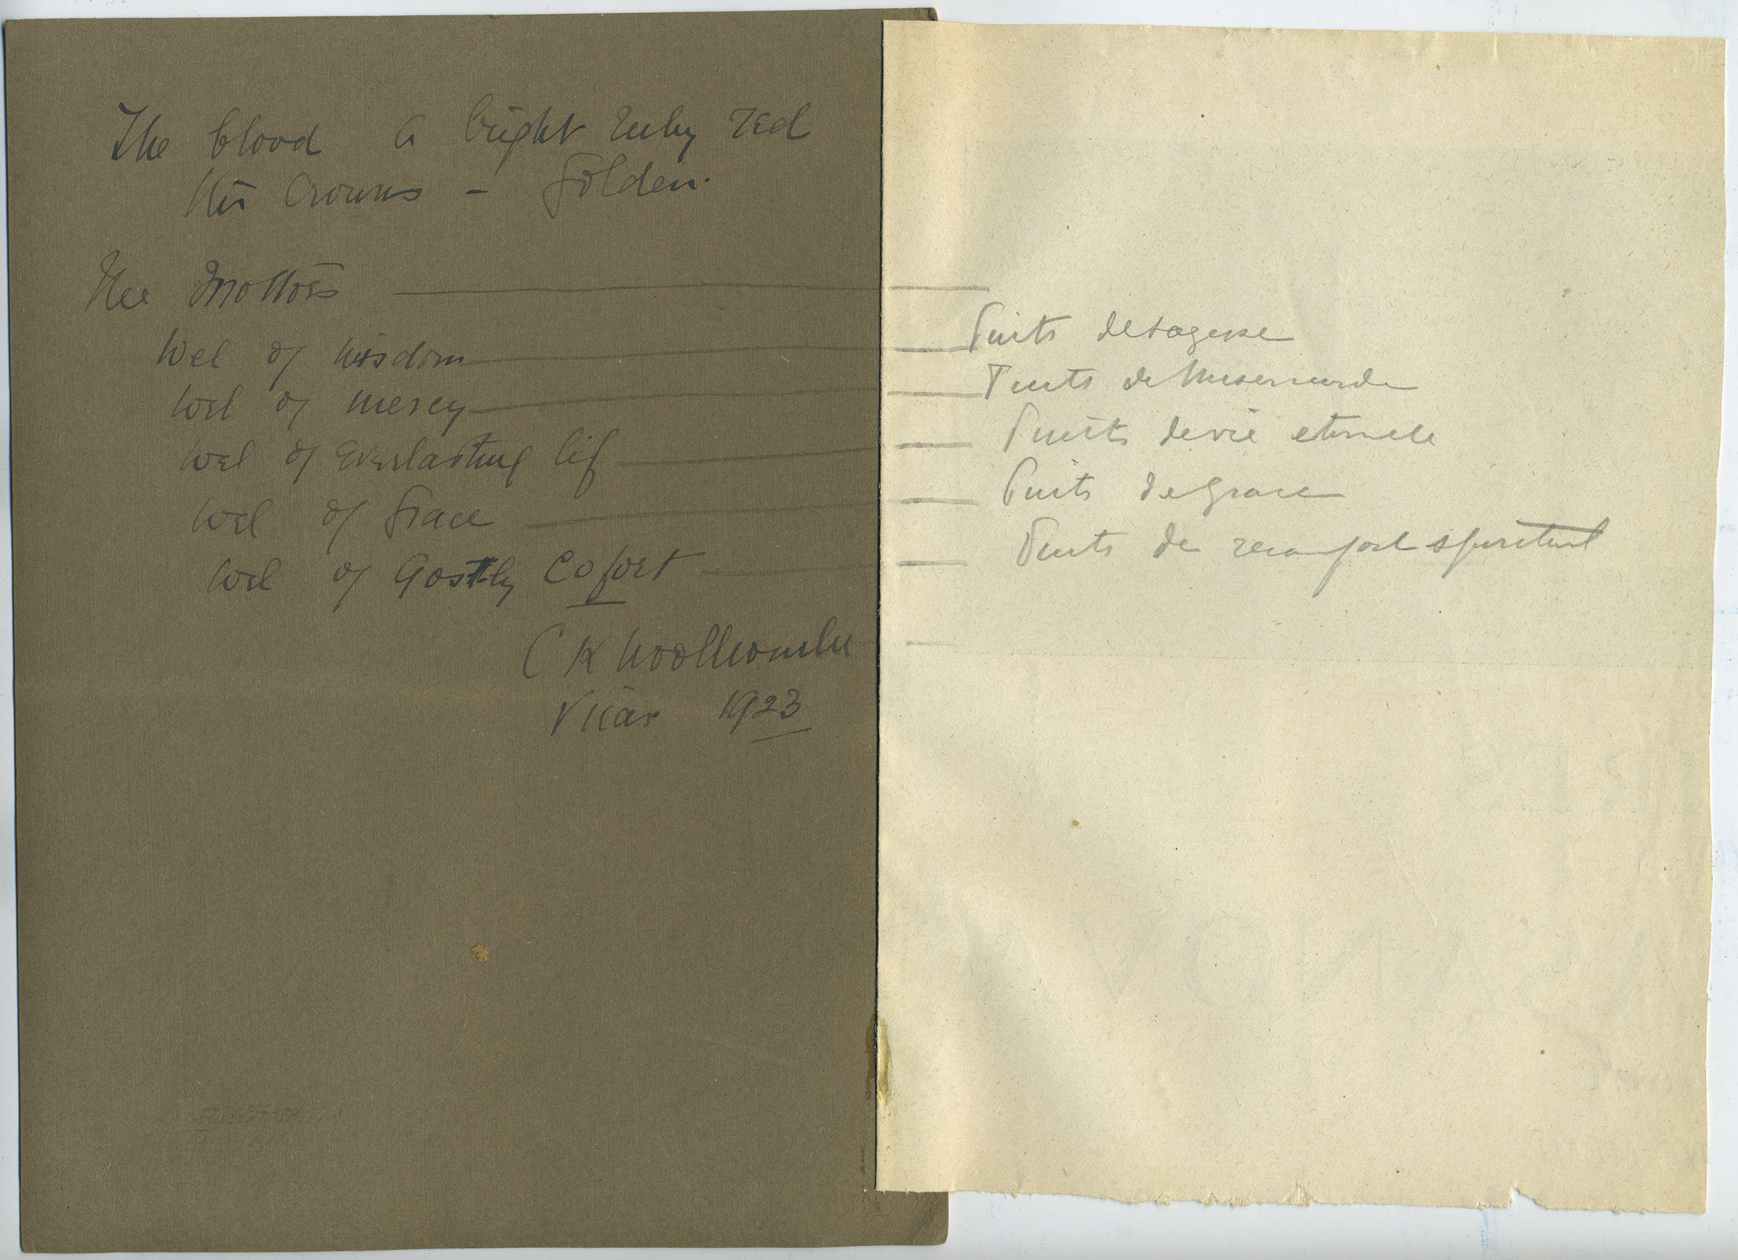 The blood a bright ruby red
His Crowns - Golden.
The Mottoes
Wel of Wisdom
Wel of Mercy
Wel of Everlasting lif
Wel of Grace
Wel of Gostly Cofort
C K Woollcombe
Vicar 1923
Puits de sagesse
Puits de Misericorde
Puits de vie eternele
Puits de Grace
Puits de reconfort spirituel
RES
ASANOVA